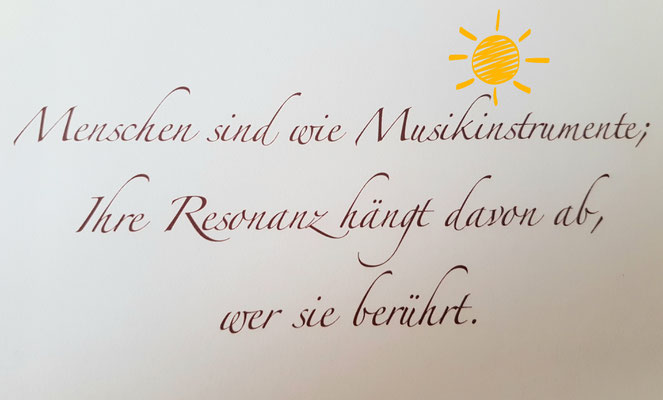 Menschen sind wie Musikinstrumente;
Ihre Resonanz hängt davon ab,
wer sie berührt.